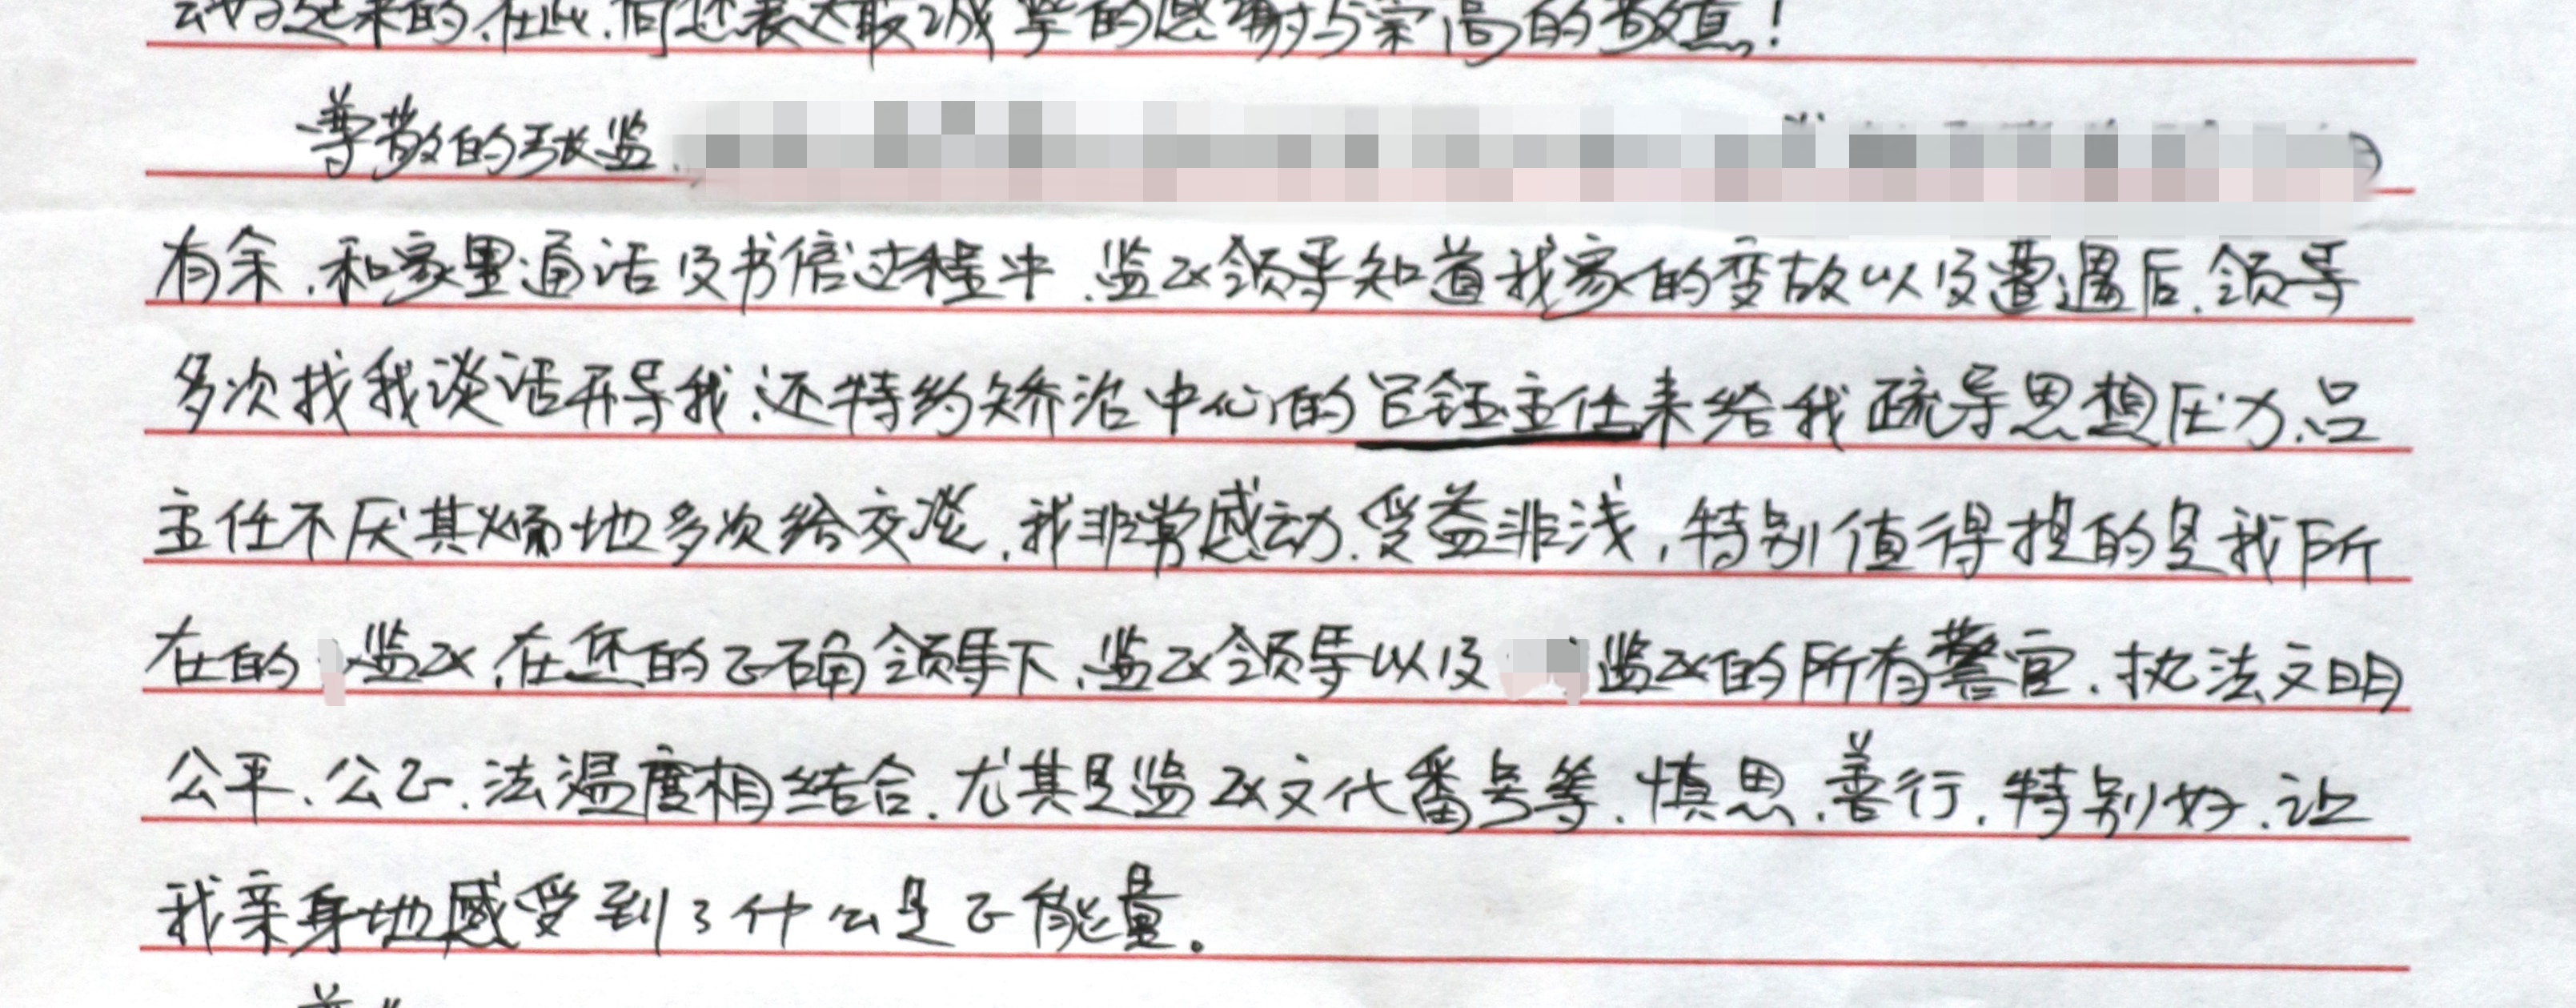 起来的,在此,向您表达最诚挚的感谢与崇高的敬意!
尊敬的张监
有余,和家里通话及书信过程中,监区领导知道我家的变故以及遭遇后,领导
多次找我谈话开导我,还特约矫治中心的吕钰主任来给我疏导思想压力,吕
主任不厌其烦地多次给交谈,我非常感动,受益非浅,特别值得提的是我所
在的监区,在您的正确领导下,监区领导以及监区的所有警官,执法文明
公平、公正、法温度相结合,尤其是监区文代番号等,慎思,善行,特别好,让
我亲身地感受到了什么是正能量。